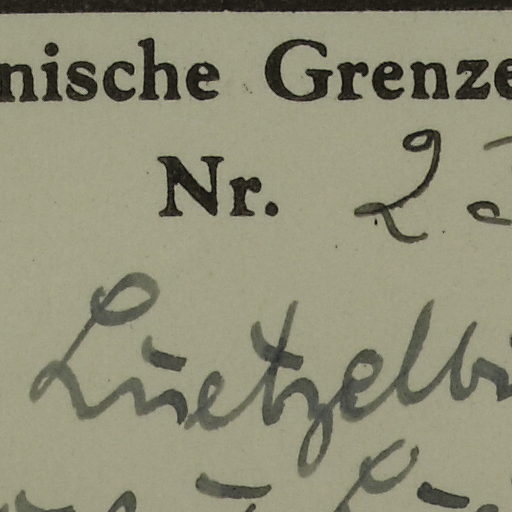 nische Grenze
Nr. 2
Luetzelb